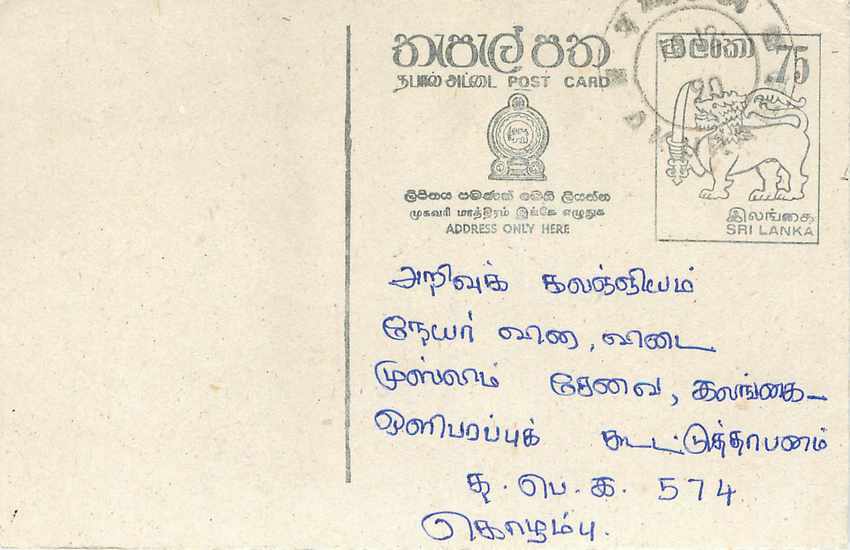 තැපැල් පත
தபால் அட்டை POST CARD
ශ්‍රී ලංකා 75
90
ලිපිනය පමණක් මෙහි ලියන්න
முகவரி மாத்திரம் இங்கே எழுதுக
ADDRESS ONLY HERE
இலங்கை
SRI LANKA
அறிவுக் களஞ்சியம்
நேயர் வினா, விடை
முஸ்லிம் சேவை, இலங்கை
ஒளிபரப்புக் கூட்டுத்தாபனம்
த. பெ. க. 574
கொழும்பு.